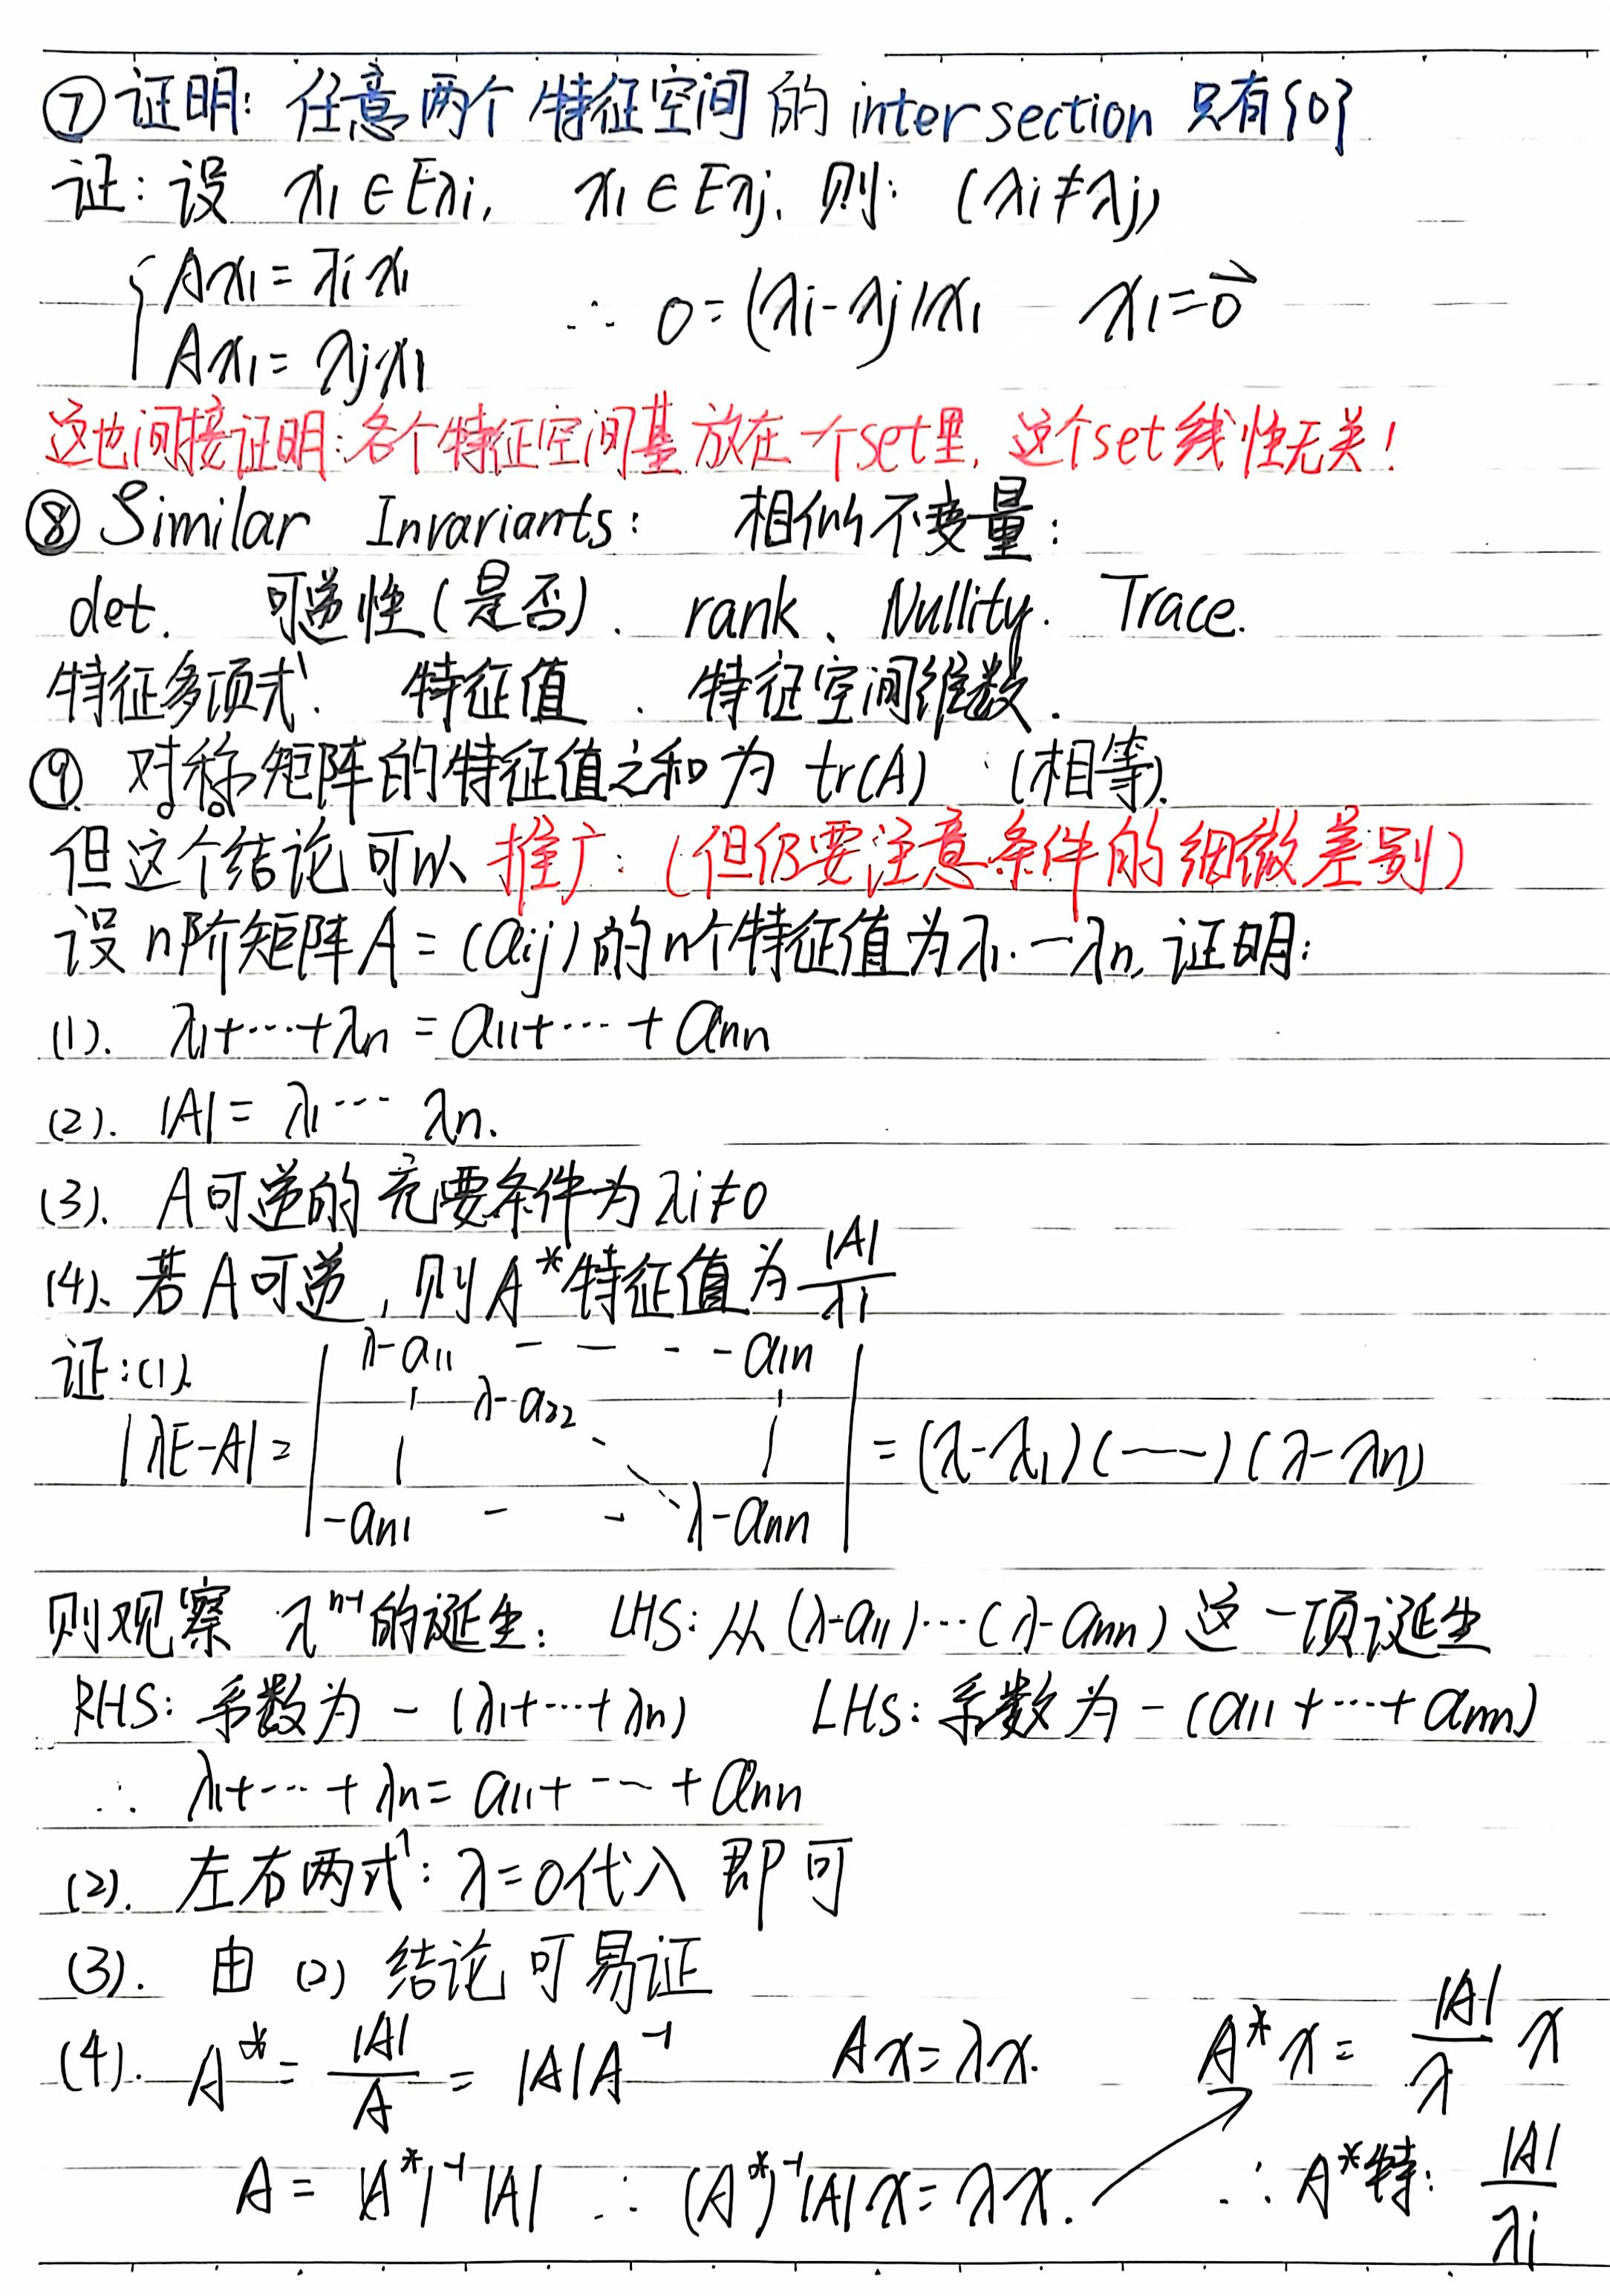 ⑦ 证明: 任意两个特征空间的 intersection 只有{0}
证: 设 x₁ ∈ Eλi, x₁ ∈ Eλj. 则: (λi ≠ λj)
{ Ax₁ = λi x₁
Ax₁ = λj x₁ ∴ 0 = (λi - λj)x₁ x₁ = 0⃗
这也间接证明: 各个特征空间基放在一个set里, 这个set线性无关!
⑧ Similar Invariants: 相似不变量:
det. 可逆性(是否). rank、Nullity. Trace.
特征多项式. 特征值. 特征空间维数.
⑨. 对称矩阵的特征值之和为 tr(A) (相等).
但这个结论可以推广: (但仍要注意条件的细微差别)
设n阶矩阵A = (aij)的n个特征值为λ₁. … λn, 证明:
(1). λ₁+…+λn = a₁₁+…+ann
(2). |A| = λ₁… λn.
(3). A可逆的充要条件为λi≠0
(4). 若A可逆, 则A*特征值为 |A|/λi
证: (1).
|λE-A| = | λ-a₁₁ - - - -a₁n
λ-a₂₂
-an₁ - - λ-ann | = (λ-λ₁)(----)(λ-λn)
则观察 λⁿ⁻¹的诞生: LHS: 从(λ-a₁₁)…(λ-ann)这一项诞生
RHS: 系数为 -(λ₁+…+λn) LHS: 系数为 -(a₁₁+…+ann)
∴ λ₁+…+λn = a₁₁+…+ann
(2). 左右两式: λ=0代入即可
(3). 由(2)结论可易证
(4). A* = |A|/A = |A|A⁻¹ Ax=λx. A*x = |A|/λ x
A = (A*)⁻¹|A| ∴ (A*)⁻¹|A|x = λx. ∴ A*特: |A|/λi